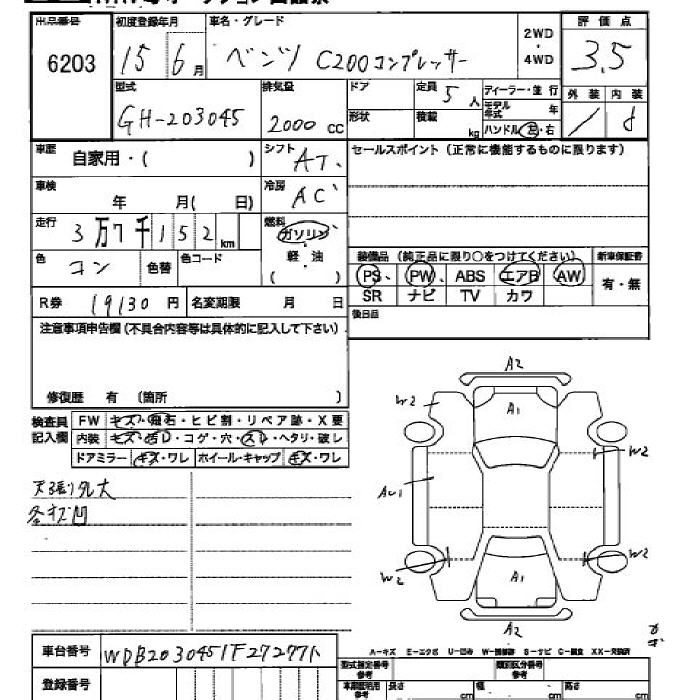 出品番号 初度登録年月 車名・グレード 2WD・4WD 評価点
6203 15 6月 ベンツ C200コンプレッサー 3.5
型式 排気量 ドア 定員 5人 ディーラー・並行 外装 内装
GH-203045 2000cc 形状 積載 kg モデル年式 年 ハンドル 左・右
車歴 自家用・( ) シフト AT セールスポイント(正常に機能するものに限ります)
車検 年 月( 日) 冷房 AC
走行 3万7千152km 燃料 ガソリン・軽・油 ( )
色 コン 色替 色コード 装備品(純正品に限り○をつけてください) 新車保証書
PS、PW、ABS エアB AW 有・無
SR ナビ TV カワ
R券 19130円 名変期限 月 日 後日品
注意事項申告欄(不具合内容等は具体的に記入して下さい)
修復歴 有 (箇所 )
検査員記入欄 FW キズ・飛石・ヒビ割・リペア跡・X要
内装 キズ・汚レ・コゲ・穴・スレ・ヘタリ・破レ
ドアミラー キズ・ワレ ホイール・キャップ キズ・ワレ
各キズ凹
A2
W2 A1
W2
AU1
W2 W2
A1
A2
A-キズ E-エクボ U-凹み W-補修跡 S-サビ C-腐食 XX-交換済
車台番号 WDB2030451F272771
登録番号
型式指定番号 参考 類別区分番号 参考
長さ cm 幅 cm 高さ cm